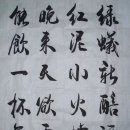 绿蟻新醅酒
红泥小火
晚来天欲
能飲一杯